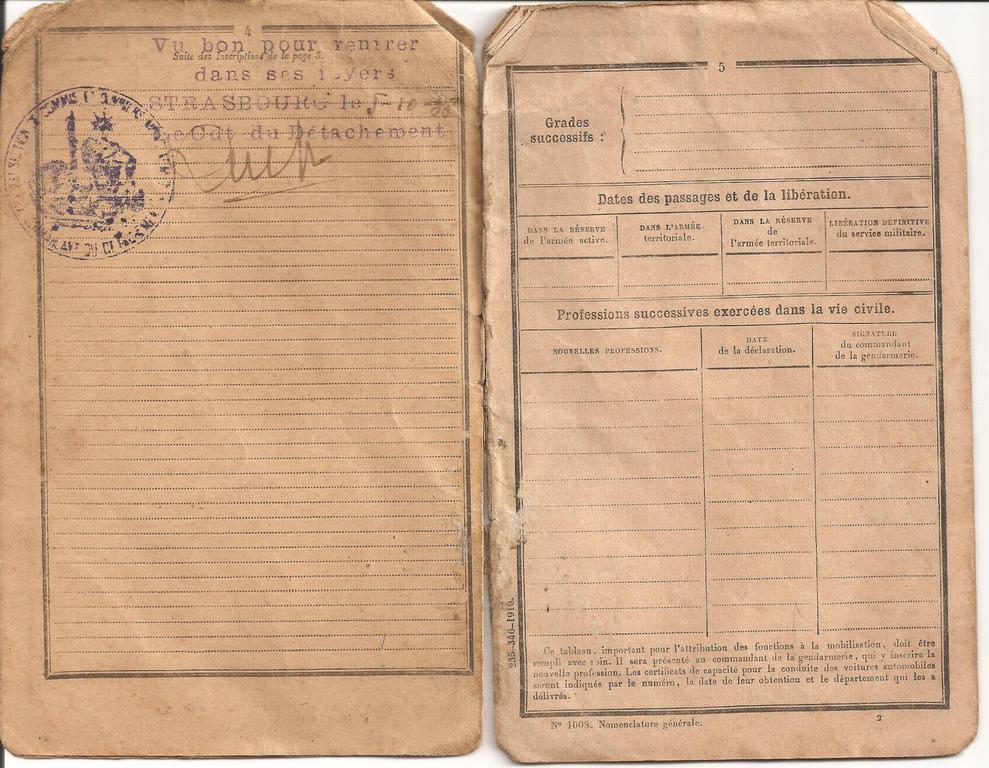 4
Vu bon pour rentrer
Suite des Inscriptions de la page 3.
dans ses
STRASBOURG le 5-10-
Cdt du Détachement
5
Grades
successifs :
Dates des passages et de la libération.
DANS LA RÉSERVE
de l'armée active.
DANS L'ARMÉE
territoriale.
DANS LA RÉSERVE
de
l'armée territoriale.
LIBÉRATION DÉFINITIVE
du service militaire.
Professions successives exercées dans la vie civile.
NOUVELLES PROFESSIONS.
DATE
de la déclaration.
SIGNATURE
du commandant
de la gendarmerie.
Ce tableau, important pour l'attribution des fonctions à la mobilisation, doit être
rempli avec soin. Il sera présenté au commandant de la gendarmerie, qui y inscrira la
nouvelle profession. Les certificats de capacité pour la conduite des voitures automobiles
seront indiqués par le numéro, la date de leur obtention et le département qui les a
délivrés.
235-346-1916.
N° 1008. Nomenclature générale.
2